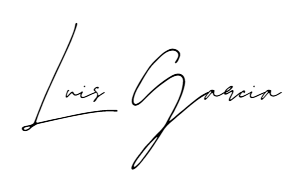 Luis Garcia